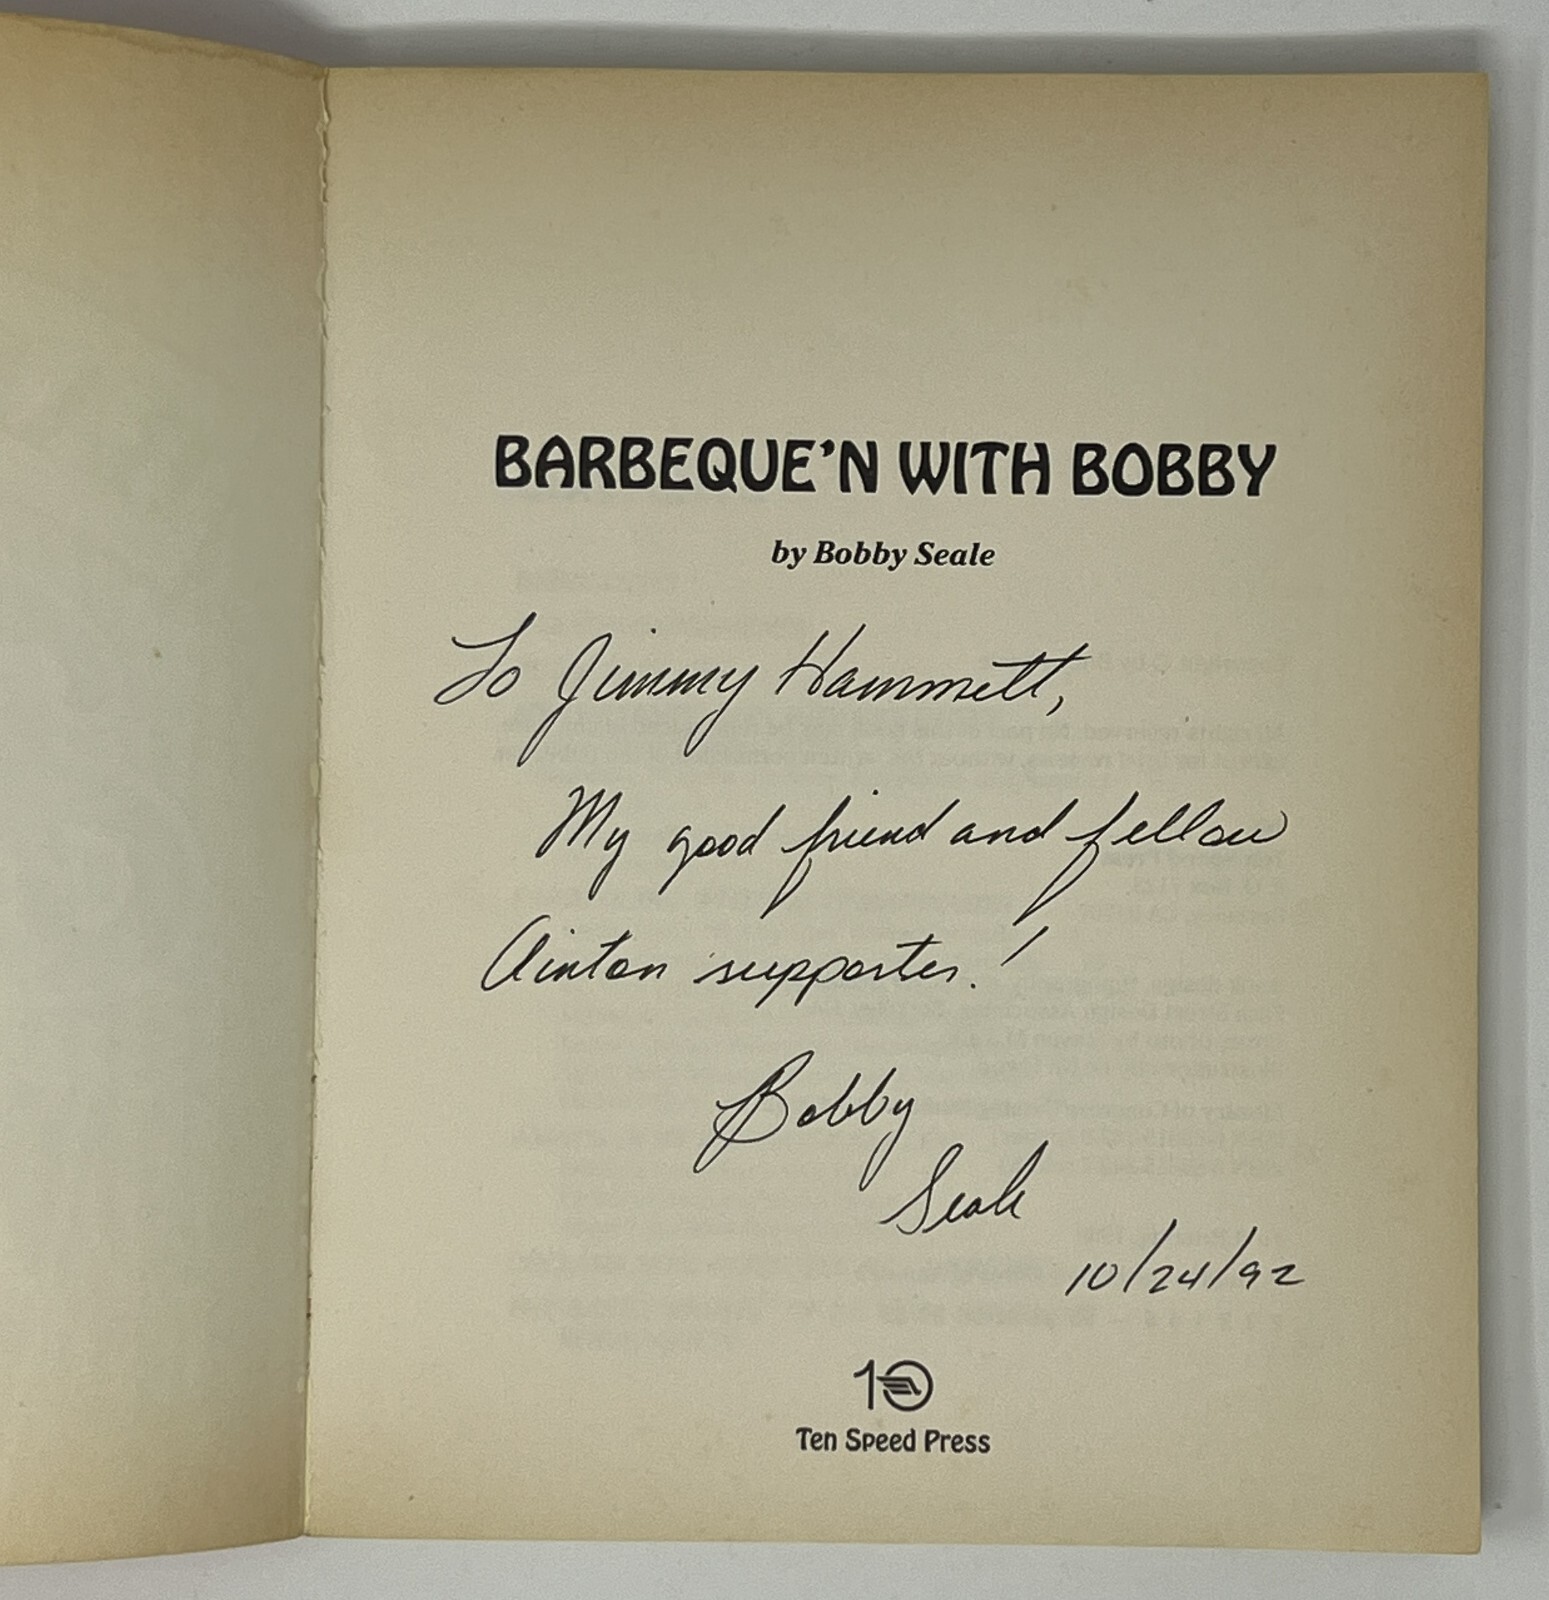 BARBEQUE'N WITH BOBBY
by Bobby Seale
To Jimmy Hammett,
My good friend and fellow
Clinton supporter!
Bobby
Seale
10/24/92
10
Ten Speed Press